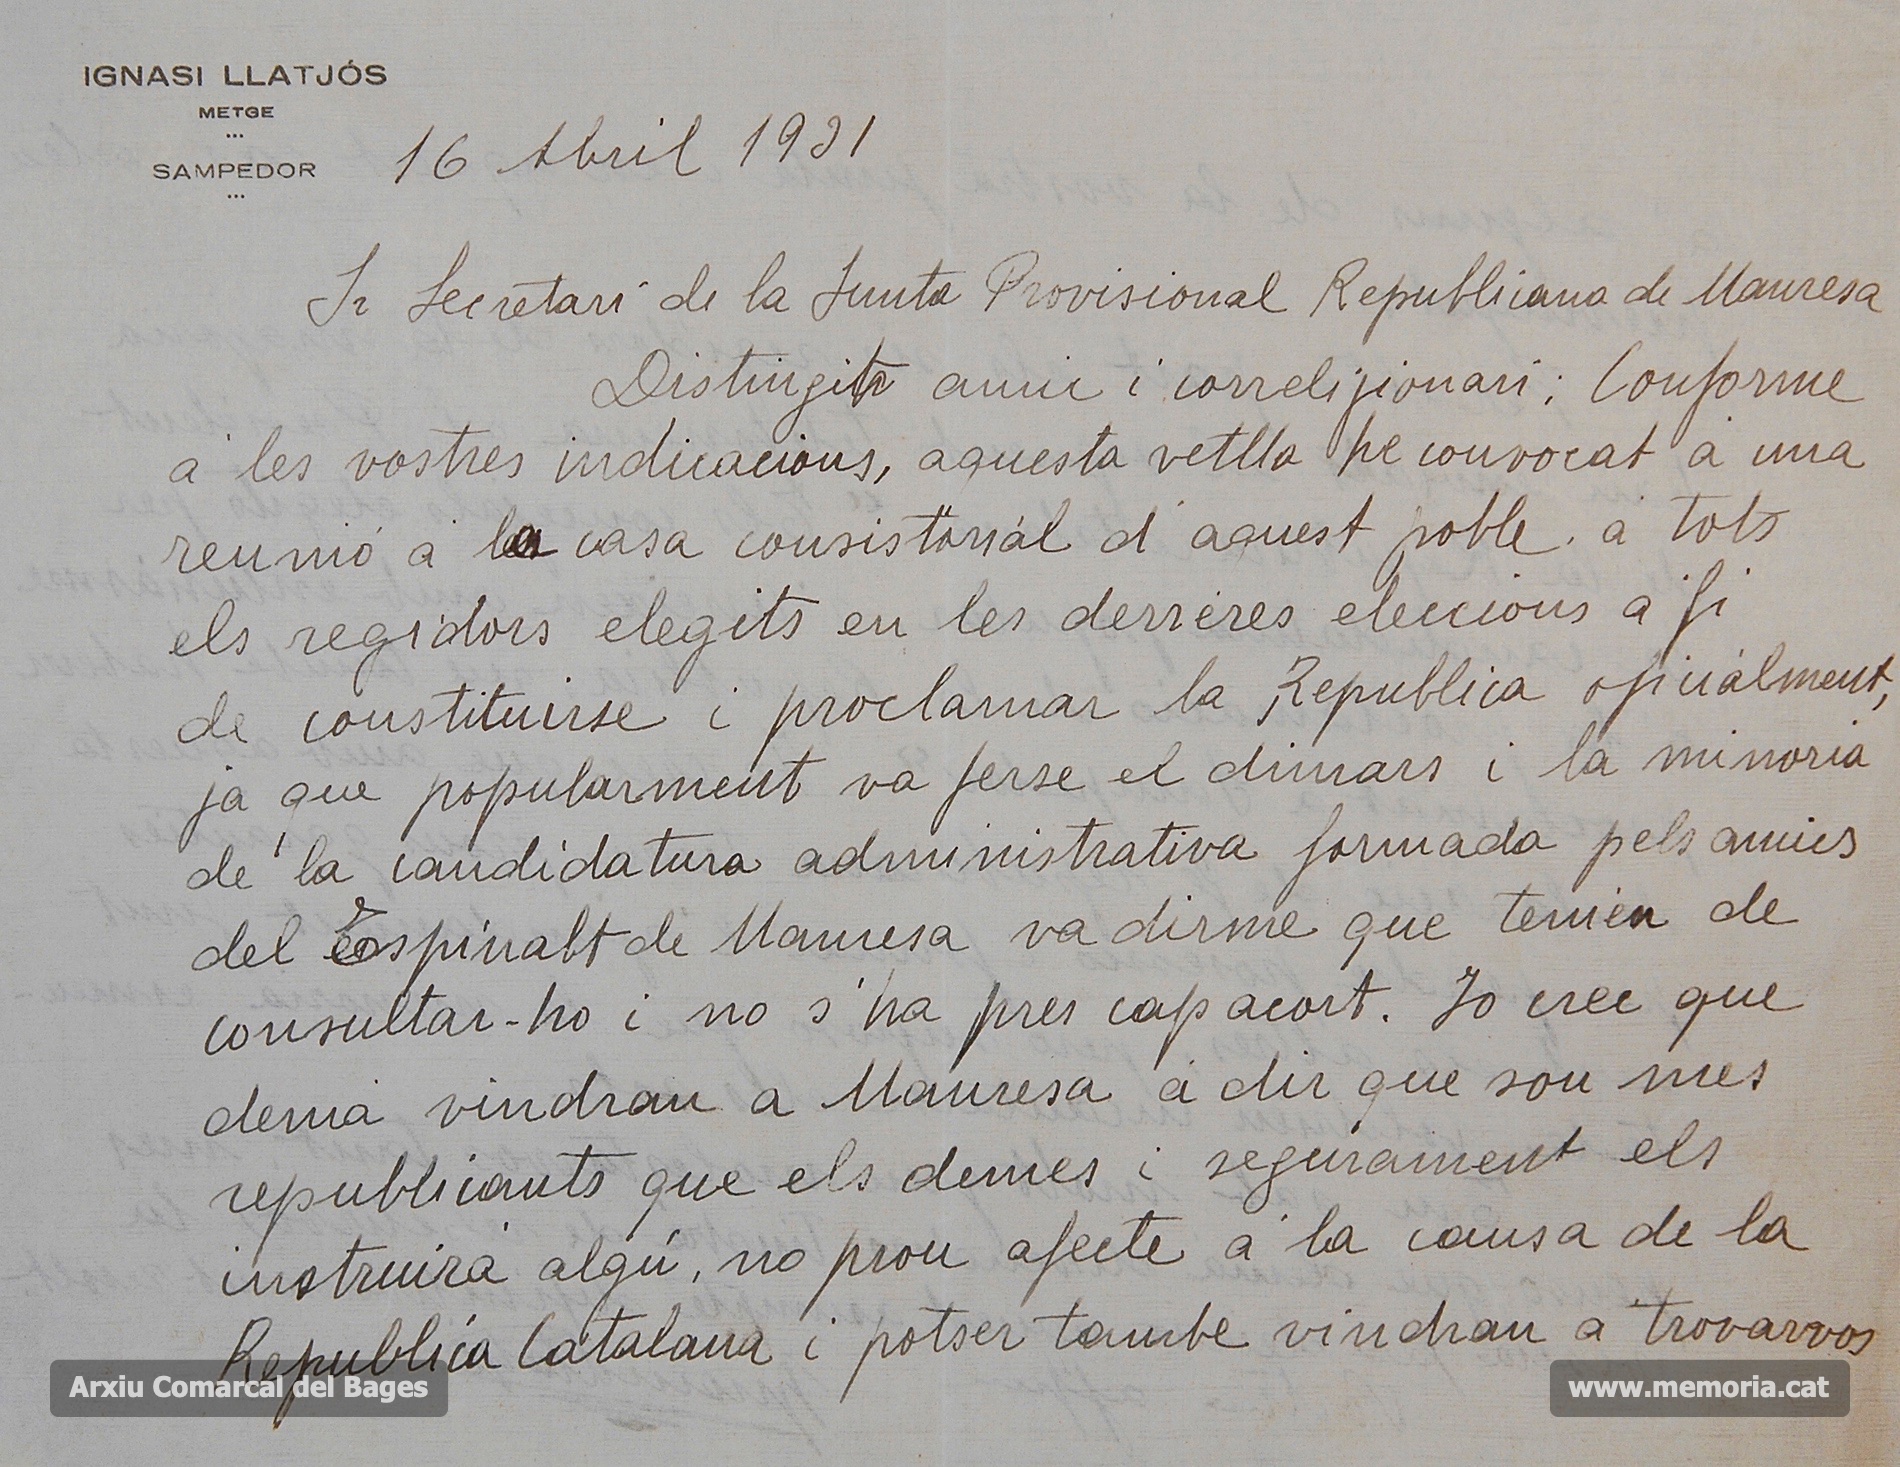 IGNASI LLATJÓS
METGE
...
SAMPEDOR
...
16 Abril 1931
Sr Secretari de la Junta Provisional Republicana de Manresa
Distingit amic i correligionari; Conforme
à les vostres indicacions, aquesta vetlla he convocat à una
reunió à la casa consistorial d'aquest poble à tots
els regidors elegits en les derreres eleccions à fi
de constituirse i proclamar la Republica oficialment,
ja que popularment va ferse el dimars i la minoria
de la candidatura administrativa formada pels amics
del Espinalt de Manresa va dirme que tenien de
consultar-ho i no s'ha pres cap acort. Jo crec que
demà vindran a Manresa à dir que son mes
republicants que els demes i segurament els
instruirà algú, no prou afecte à la causa de la
República Catalana i potser tambe vindran à trovarvos
Arxiu Comarcal del Bages
www.memoria.cat